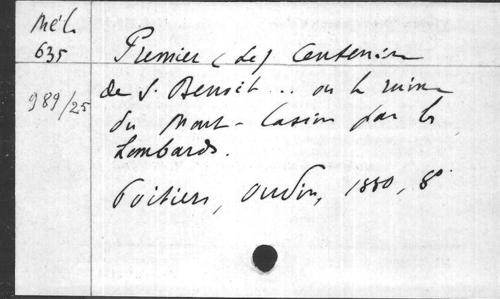 Mél.
635
Premier (le) Centenaire
989/25
de S. Benoit ... ou la ruine
du Mont-Cassin par les
Lombards.
Poitiers, Oudin, 1880, 8°